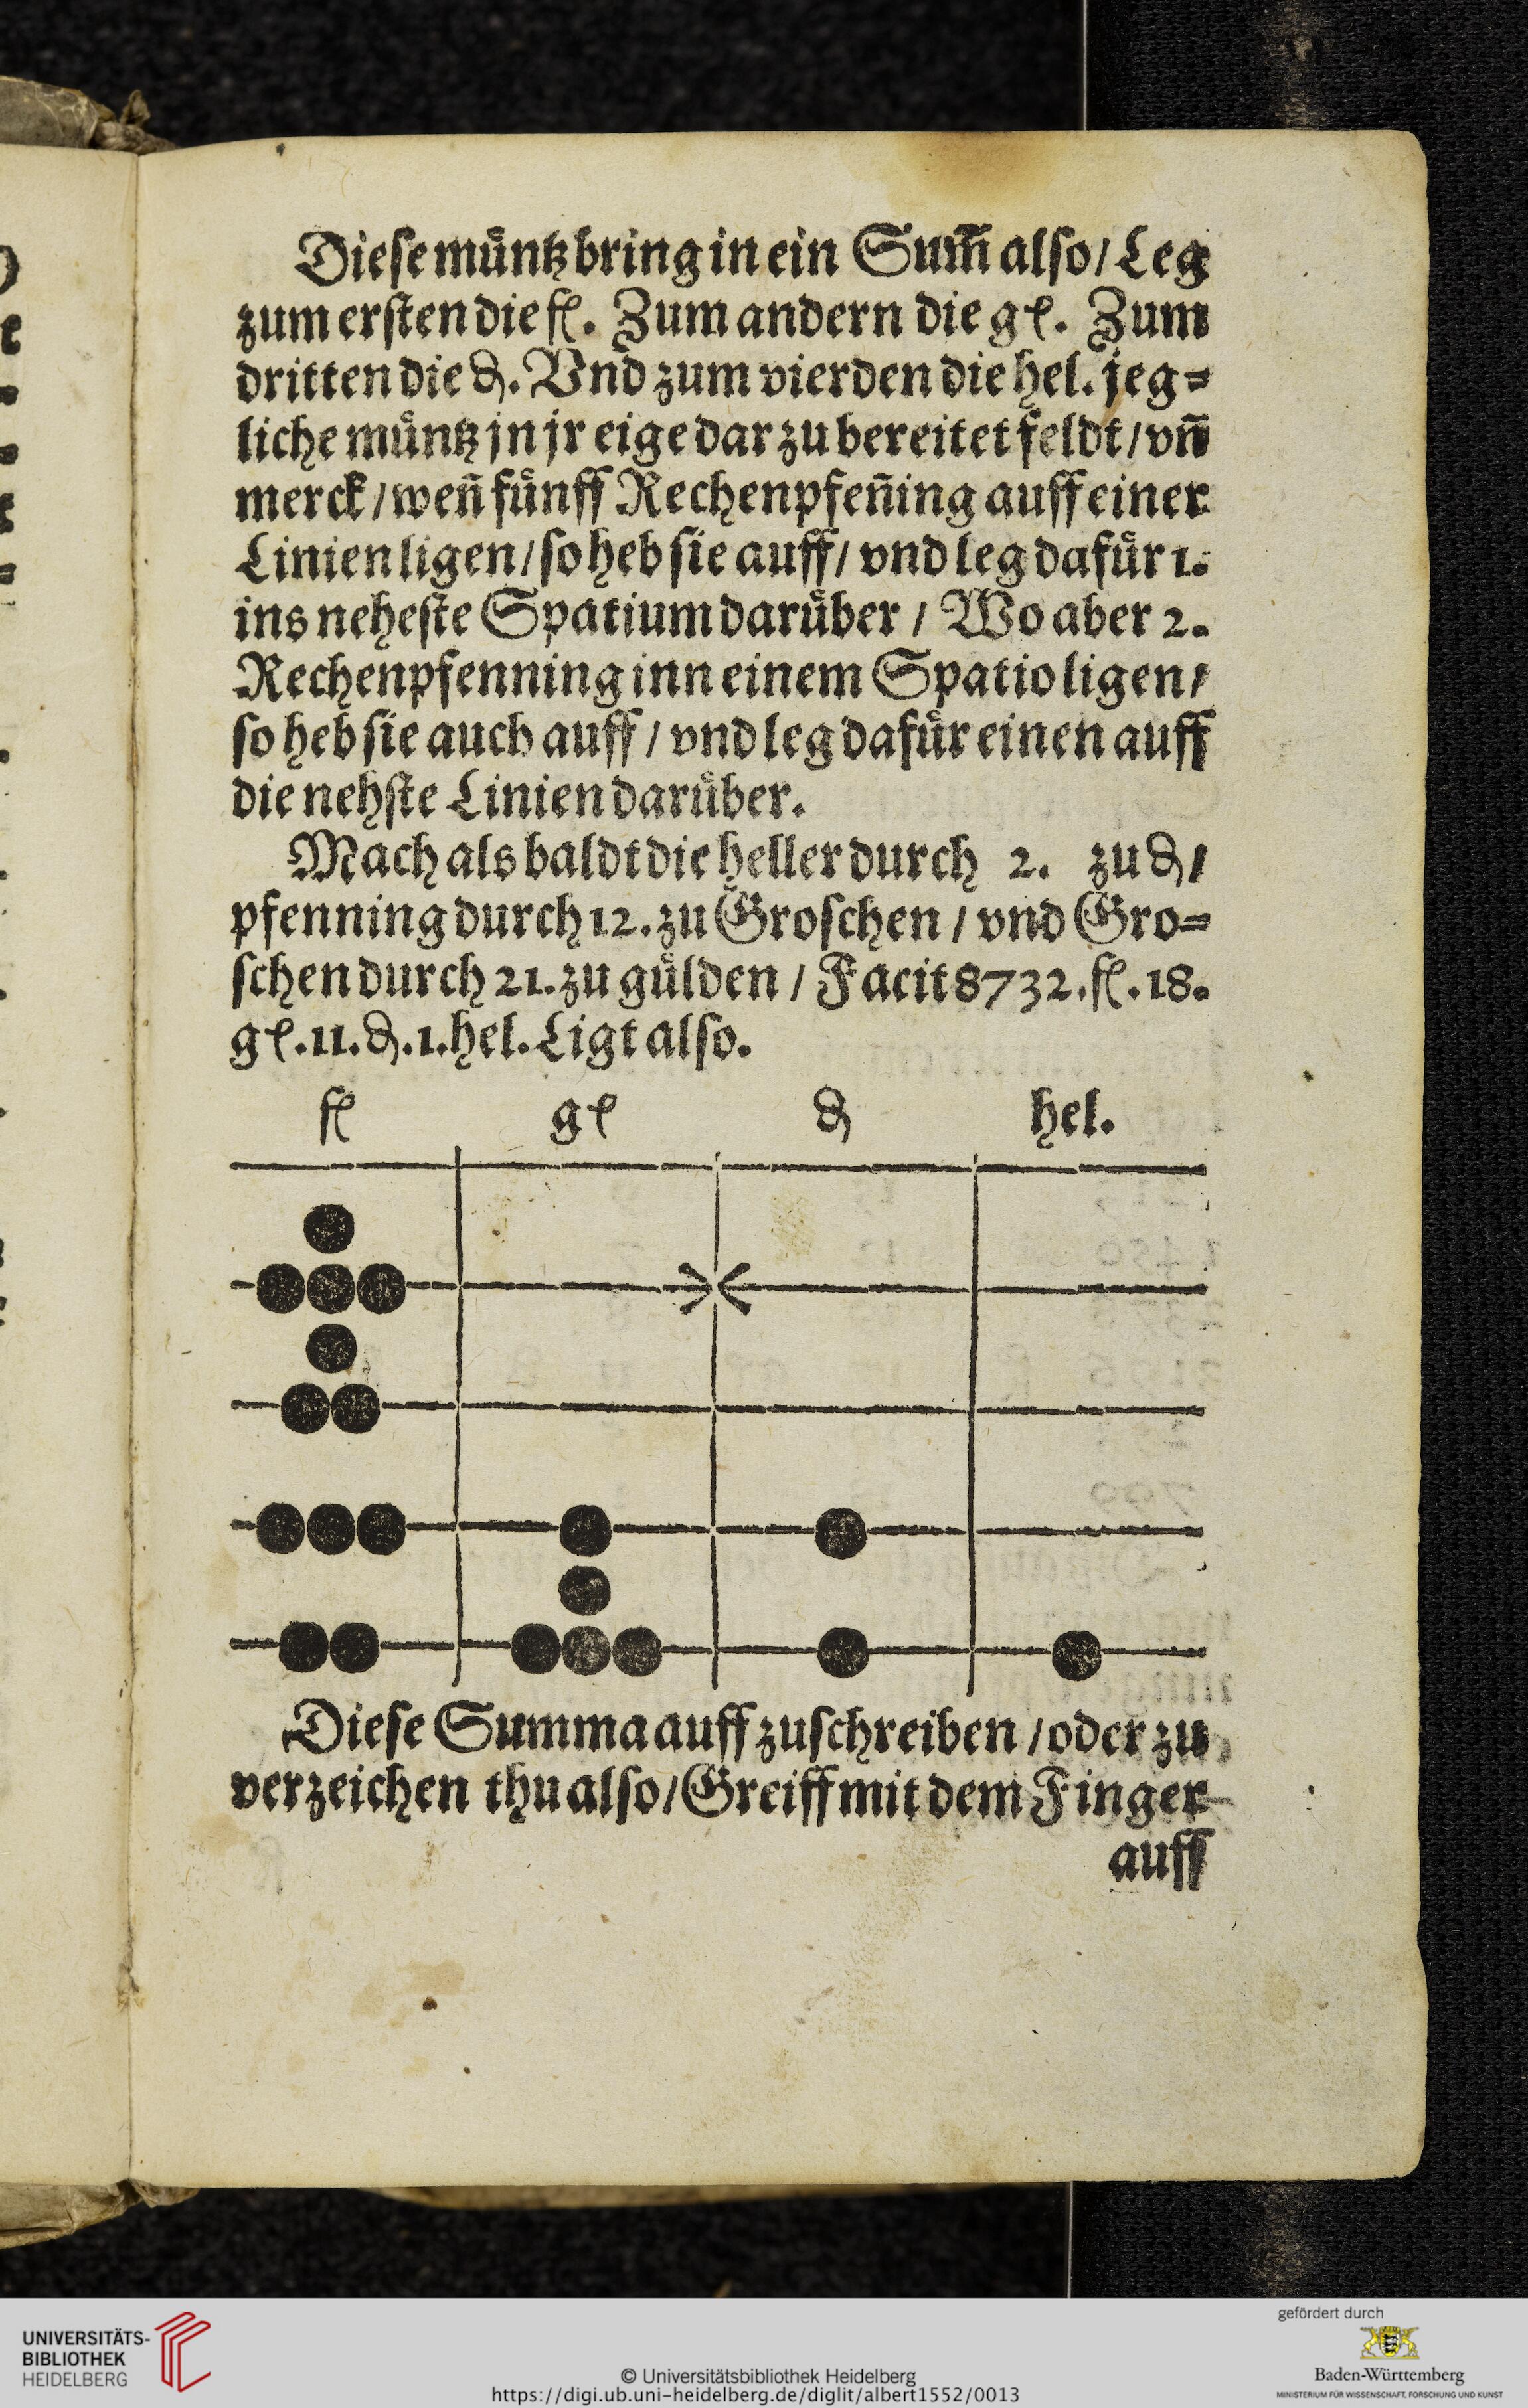 Diese müntz bring in ein Sum̃ also / Leg
zum ersten die fl. Zum andern die gl. Zum
dritten die ₰. Vnd zum vierden die hel. jeg=
liche müntz jn jr eige dar zu bereitet feldt / vñ
merck / weñ fünff Rechenpfeñing auff einer
Linien ligen / so heb sie auff / vnd leg dafür 1.
ins neheste Spatium darüber / Wo aber 2.
Rechenpfenning inn einem Spatio ligen /
so heb sie auch auff / vnd leg dafür einen auff
die nehste Linien darüber.
Mach als baldt die heller durch 2. zu ₰ /
pfenning durch 12. zu Groschen / vnd Gro=
schen durch 21. zu gülden / Facit 8732. fl. 18.
gl. 11. ₰. 1. hel. Ligt also.
fl gl ₰ hel.
Diese Summa auff zuschreiben / oder zu
verzeichen thu also / Greiff mit dem Finger
auff
UNIVERSITÄTS-
BIBLIOTHEK
HEIDELBERG
© Universitätsbibliothek Heidelberg
https://digi.ub.uni-heidelberg.de/diglit/albert1552/0013
gefördert durch
Baden-Württemberg
MINISTERIUM FÜR WISSENSCHAFT, FORSCHUNG UND KUNST